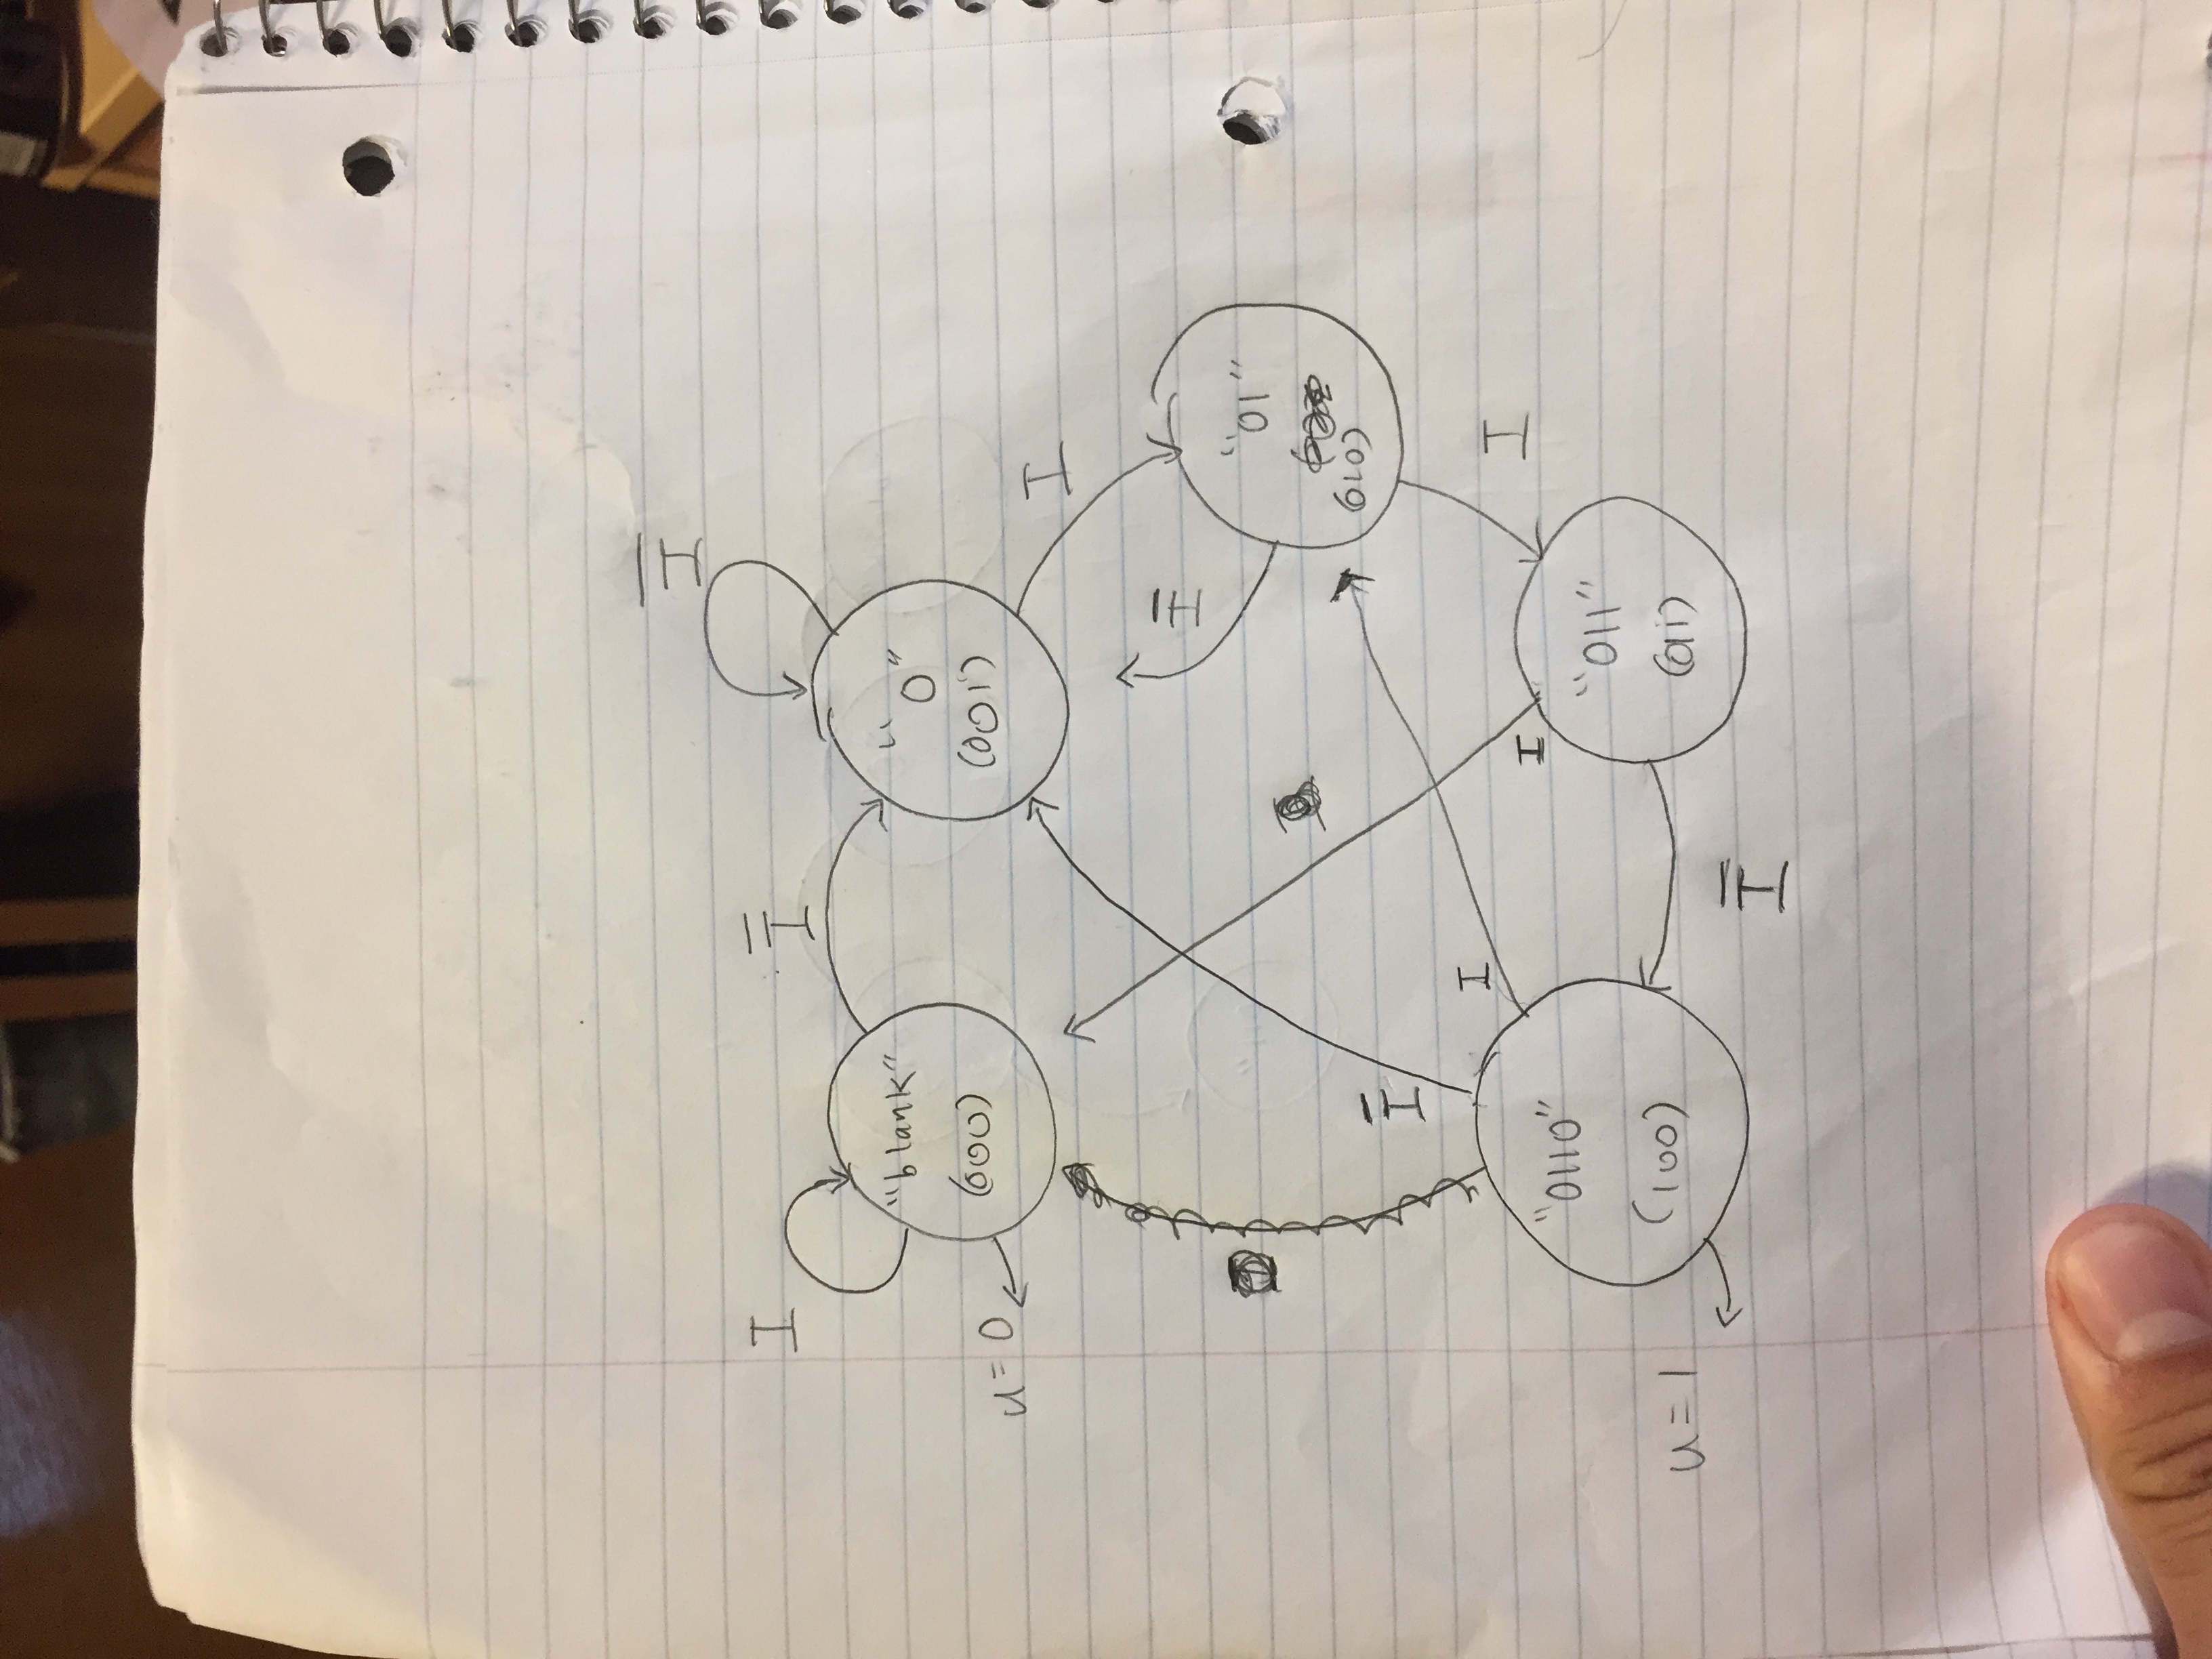 I̅
I
I̅
"blank"
(000)
"0"
(001)
u=0
I
I̅
"01"
(010)
I̅
I
I
I
"0110"
(100)
"011"
(011)
u=1
I̅